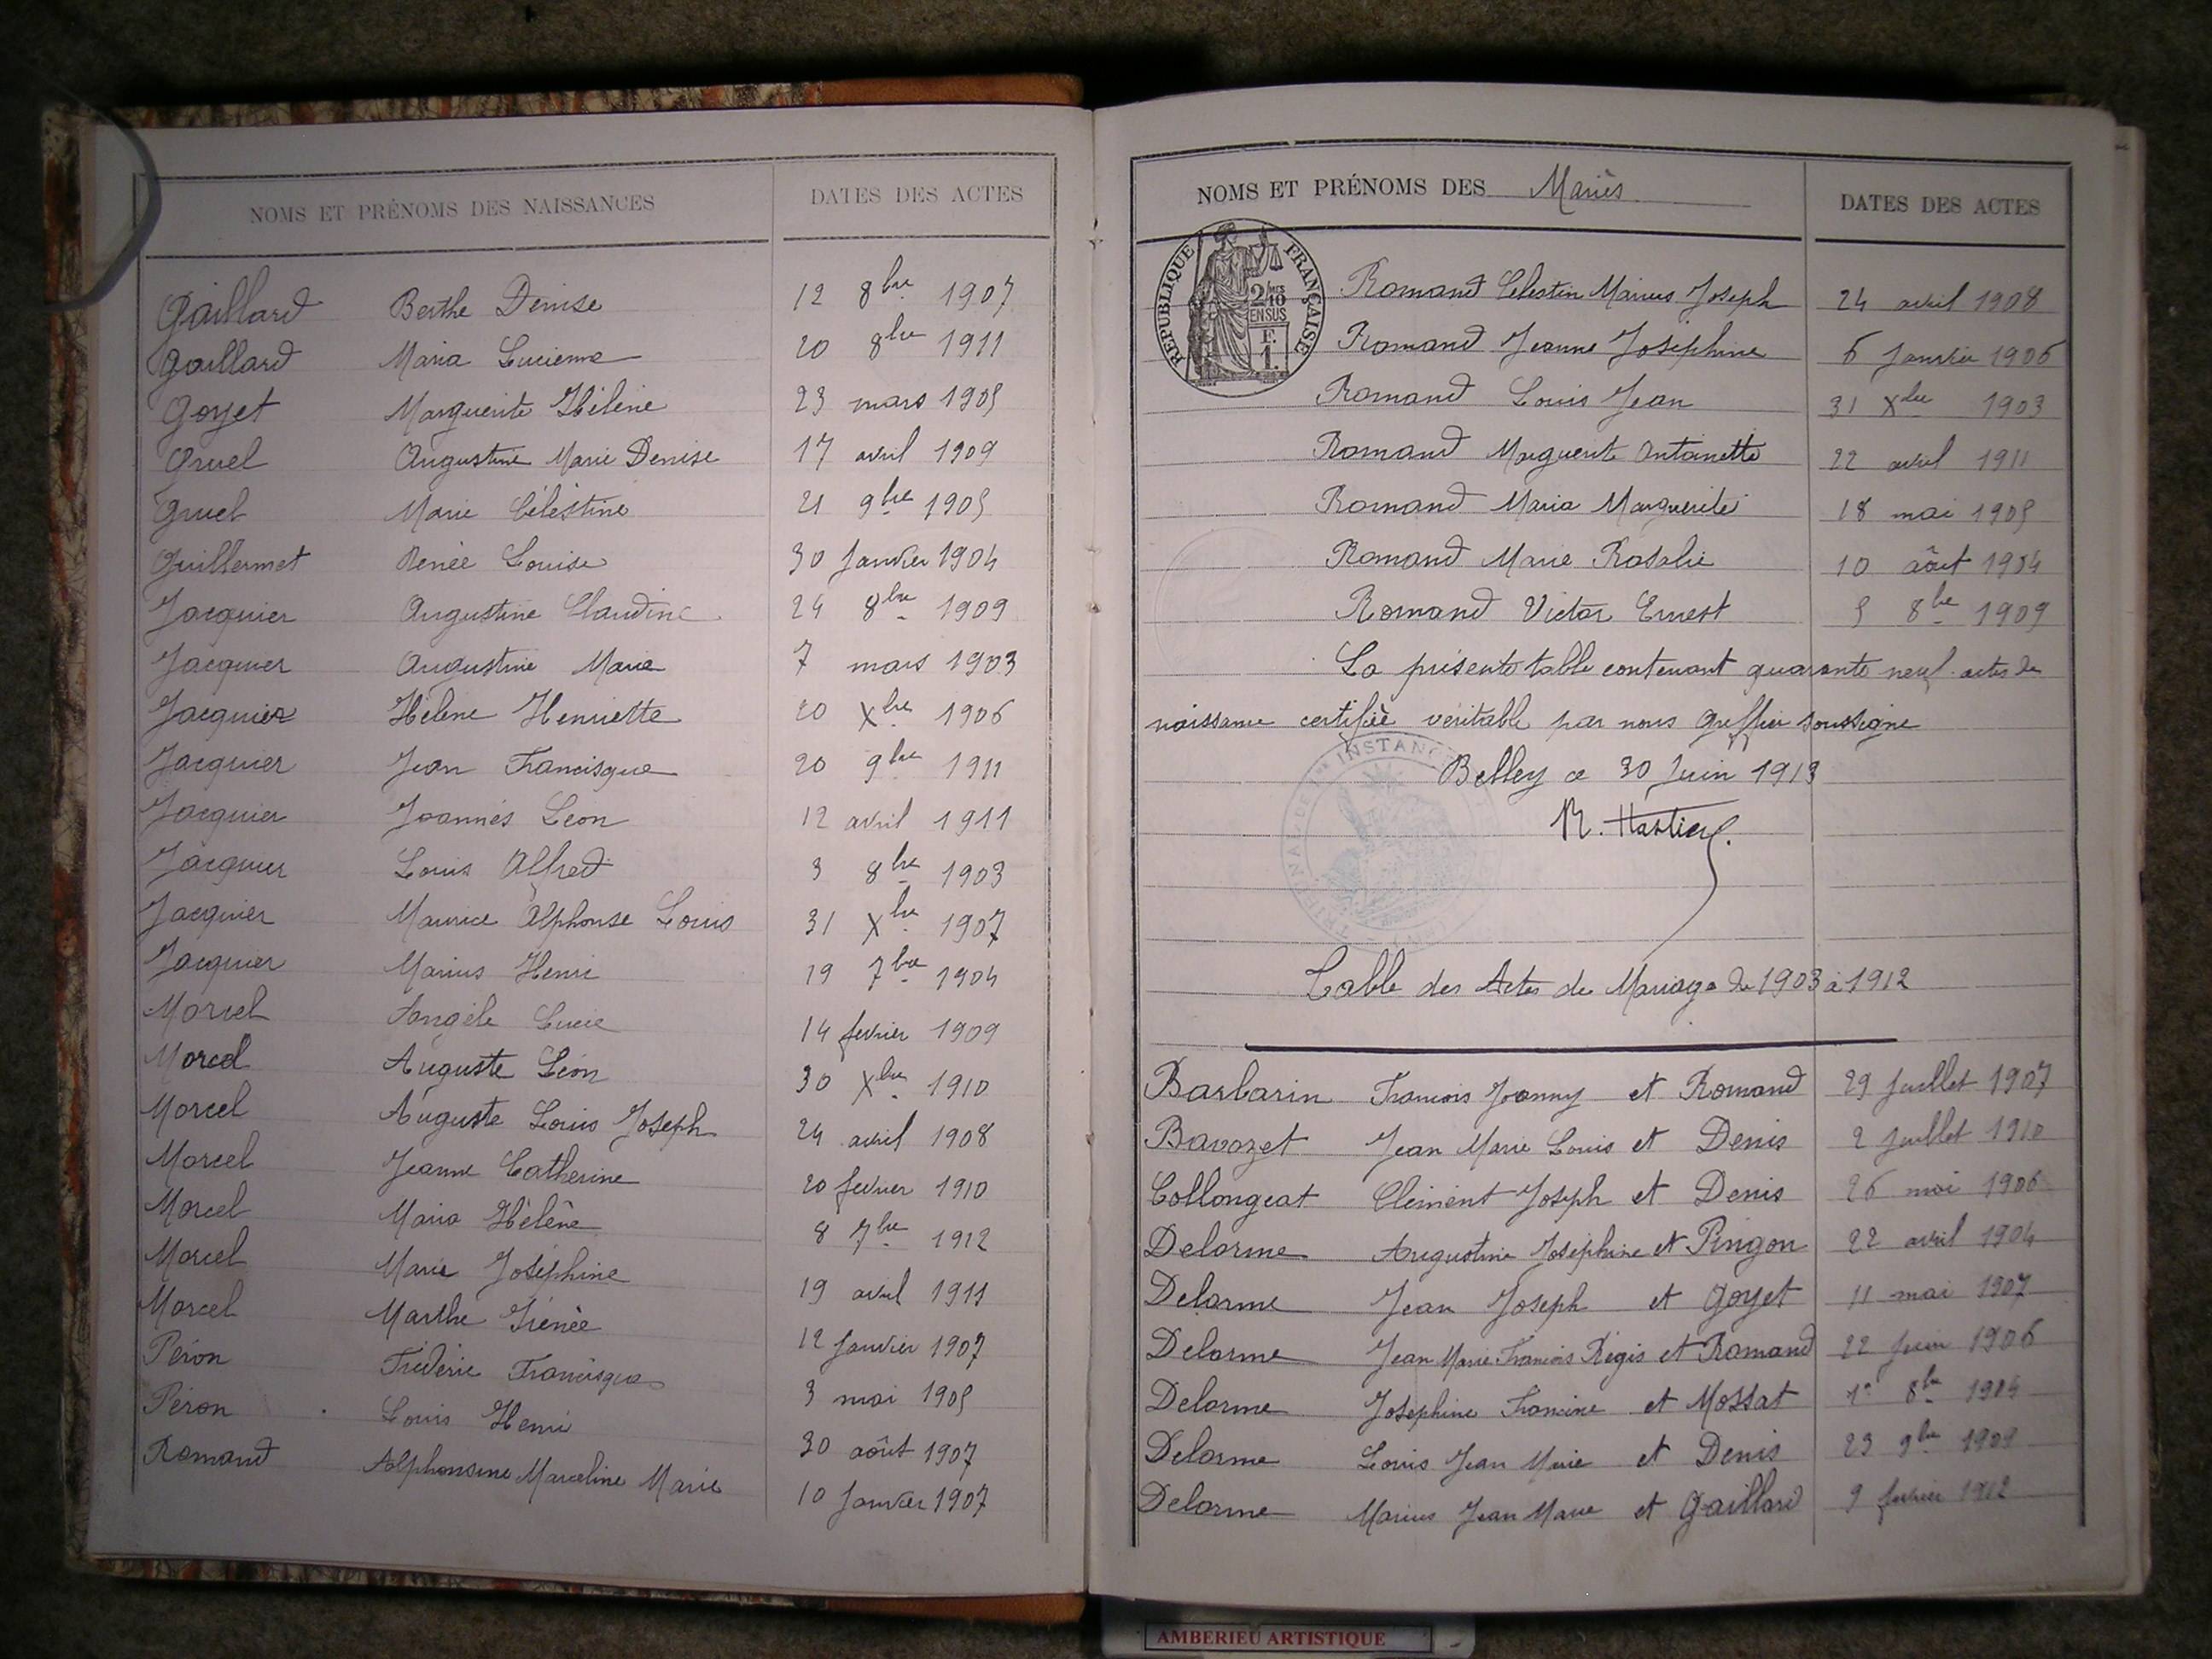 NOMS ET PRÉNOMS DES NAISSANCES DATES DES ACTES
Gaillard Berthe Denise 12 8bre 1907
Gaillard Maria Lucienne 20 8bre 1911
Goyet Marguerite Hélène 23 mars 1905
Gruel Augustine Marie Denise 17 avril 1909
Gruel Marie Célestine 21 9bre 1905
Guillermet Renée Louise 30 Janvier 1904
Jacquier Augustine Claudine 24 8bre 1909
Jacquier Augustine Maria 7 mars 1903
Jacquier Hélène Henriette 20 Xbre 1906
Jacquier Jean Francisque 20 9bre 1911
Jacquier Joannès Léon 12 avril 1911
Jacquier Louis Alfred 3 8bre 1903
Jacquier Maurice Alphonse Louis 31 Xbre 1907
Jacquier Marius Henri 19 7bre 1904
Morcel Angèle Lucie 14 fevrier 1909
Morcel Auguste Léon 30 Xbre 1910
Morcel Auguste Louis Joseph 24 avril 1908
Morcel Jeanne Catherine 20 fevrier 1910
Morcel Maria Hélène 8 7bre 1912
Morcel Marie Joséphine 19 avril 1911
Morcel Marthe Irénée 12 Janvier 1907
Péron Fréderic Francisque 3 mai 1905
Péron Louis Henri 30 août 1907
Romand Alphonsine Marceline Marie 10 Janvier 1907
NOMS ET PRÉNOMS DES Mariès DATES DES ACTES
RÉPUBLIQUE FRANÇAISE
2/10 EN SUS
F. 1.
Romand Célestin Marius Joseph 24 avril 1908
Romand Jeanne Joséphine 6 Janvier 1906
Romand Louis Jean 31 Xbre 1903
Romand Marguerite Antoinette 22 avril 1911
Romand Maria Marguerite 18 mai 1905
Romand Marie Rosalie 10 août 1904
Romand Victor Ernest 5 8bre 1909
La présente table contenant quarante neuf actes de
naissance certifiée véritable par nous Greffier soussigné
Belley ce 30 Juin 1913
INSTANCE
Table des Actes de Mariage de 1903 à 1912
Barbarin Francois Joanny et Romand 29 Juillet 1907
Bavozet Jean Marie Louis et Denis 2 Juillet 1910
Collongeat Clément Joseph et Denis 26 mai 1906
Delorme Augustine Joséphine et Pingon 22 avril 1904
Delorme Jean Joseph et Goyet 11 mai 1907
Delorme Jean Marie Francois Régis et Romand 22 Juin 1906
Delorme Joséphine Francine et Mossat 1er 8bre 1904
Delorme Louis Jean Marie et Denis 23 9bre 1909
Delorme Marius Jean Marie et Gaillard 9 fevrier 1912
AMBERIEU ARTISTIQUE